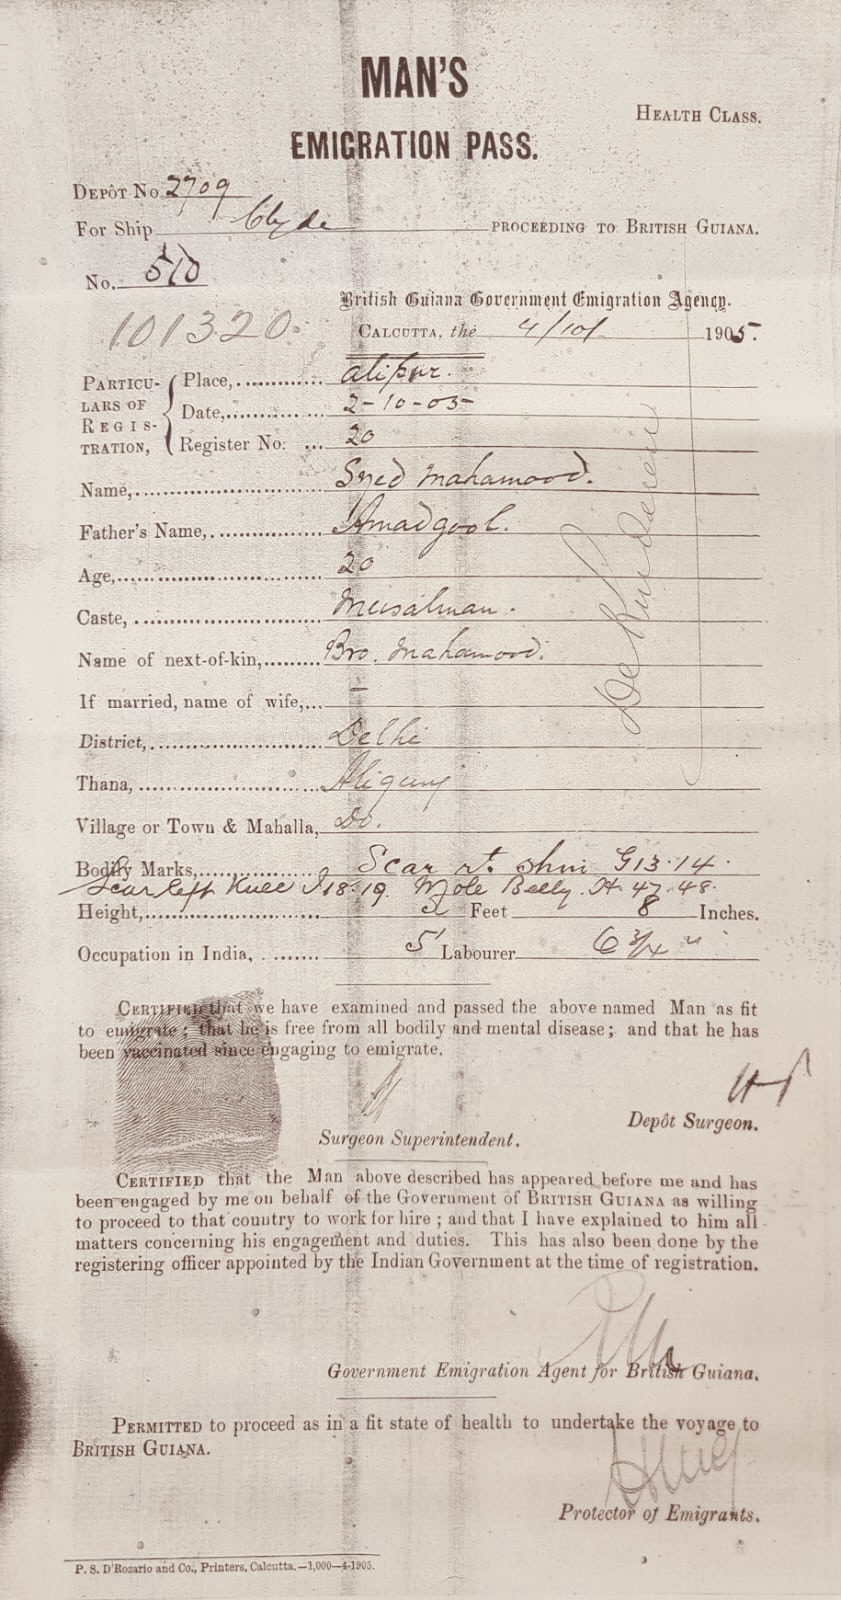 MAN'S
HEALTH CLASS.
EMIGRATION PASS.
DEPÔT No 2709
For Ship Clyde PROCEEDING TO BRITISH GUIANA.
No. 510
British Guiana Government Emigration Agency.
101320.
CALCUTTA, the 4/10/ 1905.
PARTICULARS OF REGISTRATION,
Place, alipur.
Date, 2-10-05
Register No. 20
Name, Syed Mahamood.
Father's Name, Amadgool.
Age, 20
Caste, Musalman.
Name of next-of-kin, Bro. Mahamood.
If married, name of wife, —
District, Delhi
Thana, Aligunj
Village or Town & Mahalla, Do.
Bodily Marks, Scar rt. shin G13.14.
Scar left Knee I18.19. Mole Belly. H. 47.48.
Height, 5 Feet 8 Inches.
Occupation in India, 5' Labourer 6 3/4"
CERTIFIED that we have examined and passed the above named Man as fit
to emigrate; that he is free from all bodily and mental disease; and that he has
been vaccinated since engaging to emigrate.
Surgeon Superintendent.
Depôt Surgeon.
CERTIFIED that the Man above described has appeared before me and has
been engaged by me on behalf of the Government of BRITISH GUIANA as willing
to proceed to that country to work for hire; and that I have explained to him all
matters concerning his engagement and duties. This has also been done by the
registering officer appointed by the Indian Government at the time of registration.
Government Emigration Agent for British Guiana.
PERMITTED to proceed as in a fit state of health to undertake the voyage to
BRITISH GUIANA.
Protector of Emigrants.
P. S. D'Rozario and Co., Printers, Calcutta.—1,000—4-1905.